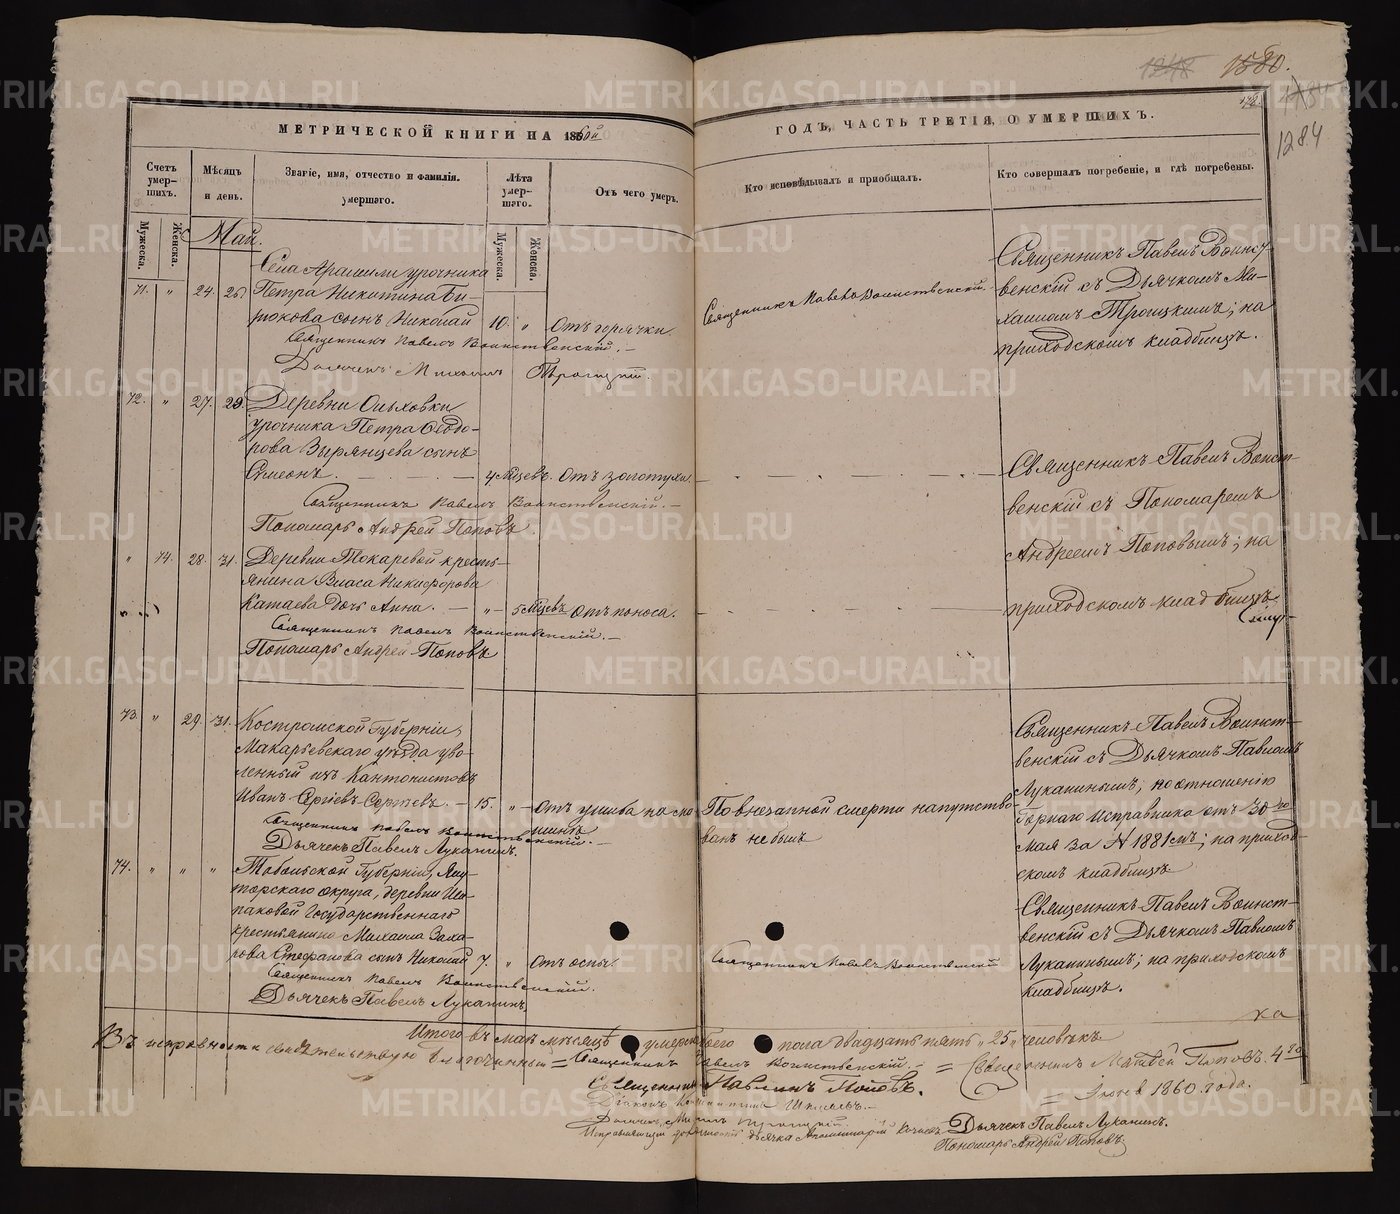 1580.
1284
МЕТРИЧЕСКОЙ КНИГИ НА 1860й
ГОДЪ, ЧАСТЬ ТРЕТІЯ, О УМЕРШИХЪ.
Счетъ умер-шихъ.
Мужеска.
Женска.
Мѣсяцъ и день.
Званіе, имя, отчество и фамилія.
умершаго.
Лѣта умер-шаго.
Мужеска.
Женска.
Отъ чего умеръ.
Кто исповѣдывалъ и пріобщалъ.
Кто совершалъ погребеніе, и гдѣ погребены.
Май.
Села Арамили урочника
71. " 24. 26 Петра Никитина Би-
рюкова сынъ Николай 10. " Отъ горячки
Священникъ Павелъ Воинственскій.
Дьячекъ Михаилъ Троицкій.
Священникъ Павелъ Воинственскій.
Священникъ Павелъ Воинст-
венскій съ Дьячкомъ Ми-
хаиломъ Троицкимъ; на
приходскомъ кладбищѣ.
72. " 27. 29. Деревни Ольховки
урочника Петра Ѳедо-
рова Зырянцева сынъ
Симеонъ. 4 мѣсцевъ. Отъ золотухи.
Священникъ Павелъ Воинственскій.
Пономарь Андрей Поповъ
Священникъ Павелъ Воинст-
венскій съ Пономаремъ
Андреемъ Поповымъ; на
приходскомъ кладбищѣ.
" 74. 28. 31. Деревни Токаревой кресть-
янина Власа Никифорова
Катаева дочь Анна. " 5 мѣсцевъ Отъ поноса.
Священникъ Павелъ Воинственскій.
Пономарь Андрей Поповъ
73. " 29. 31. Костромской Губерніи,
Макарьевскаго уѣзда уво-
ленный изъ Кантонистовъ
Иванъ Сергѣевъ Сергѣевъ. 15. " Отъ ушиба на ма-
шинѣ
Священникъ Павелъ Воинственскій.
Дьячекъ Павелъ Луканинъ.
По внезапной смерти напутство-
ванъ не былъ
Священникъ Павелъ Воинст-
венскій съ Дьячкомъ Павломъ
Луканинымъ; по отношенію
Горнаго Исправника отъ 30го
мая за № 1881мъ; на приход-
скомъ кладбищѣ
74. " " " Тобольской Губерніи, Ялу-
торскаго округа, деревни
Государственнаго
крестьянина Михаила Заха-
рова Стефанова сынъ Николай 7. " Отъ оспы.
Священникъ Павелъ Воинственскій.
Дьячекъ Павелъ Луканинъ.
Священникъ Павелъ Воинственскій
Священникъ Павелъ Воинст-
венскій съ Дьячкомъ Павломъ
Луканинымъ; на приходскомъ
кладбищѣ.
Итого въ маѣ мѣсяцѣ умерш. обоего пола двадцать пять "25" человѣкъ
Въ исправности свидѣтельствую благочинный Священникъ Павелъ Воинственскій. = Священникъ Матвей Поповъ. 4го
Іюня 1860 года.
Священникъ Павлинъ Поповъ.
Діаконъ
Дьячекъ Михаилъ Троицкій.
Исправляющій должность дьячка
Дьячекъ Павелъ Луканинъ.
Пономарь Андрей Поповъ
METRIKI.GASO-URAL.RU